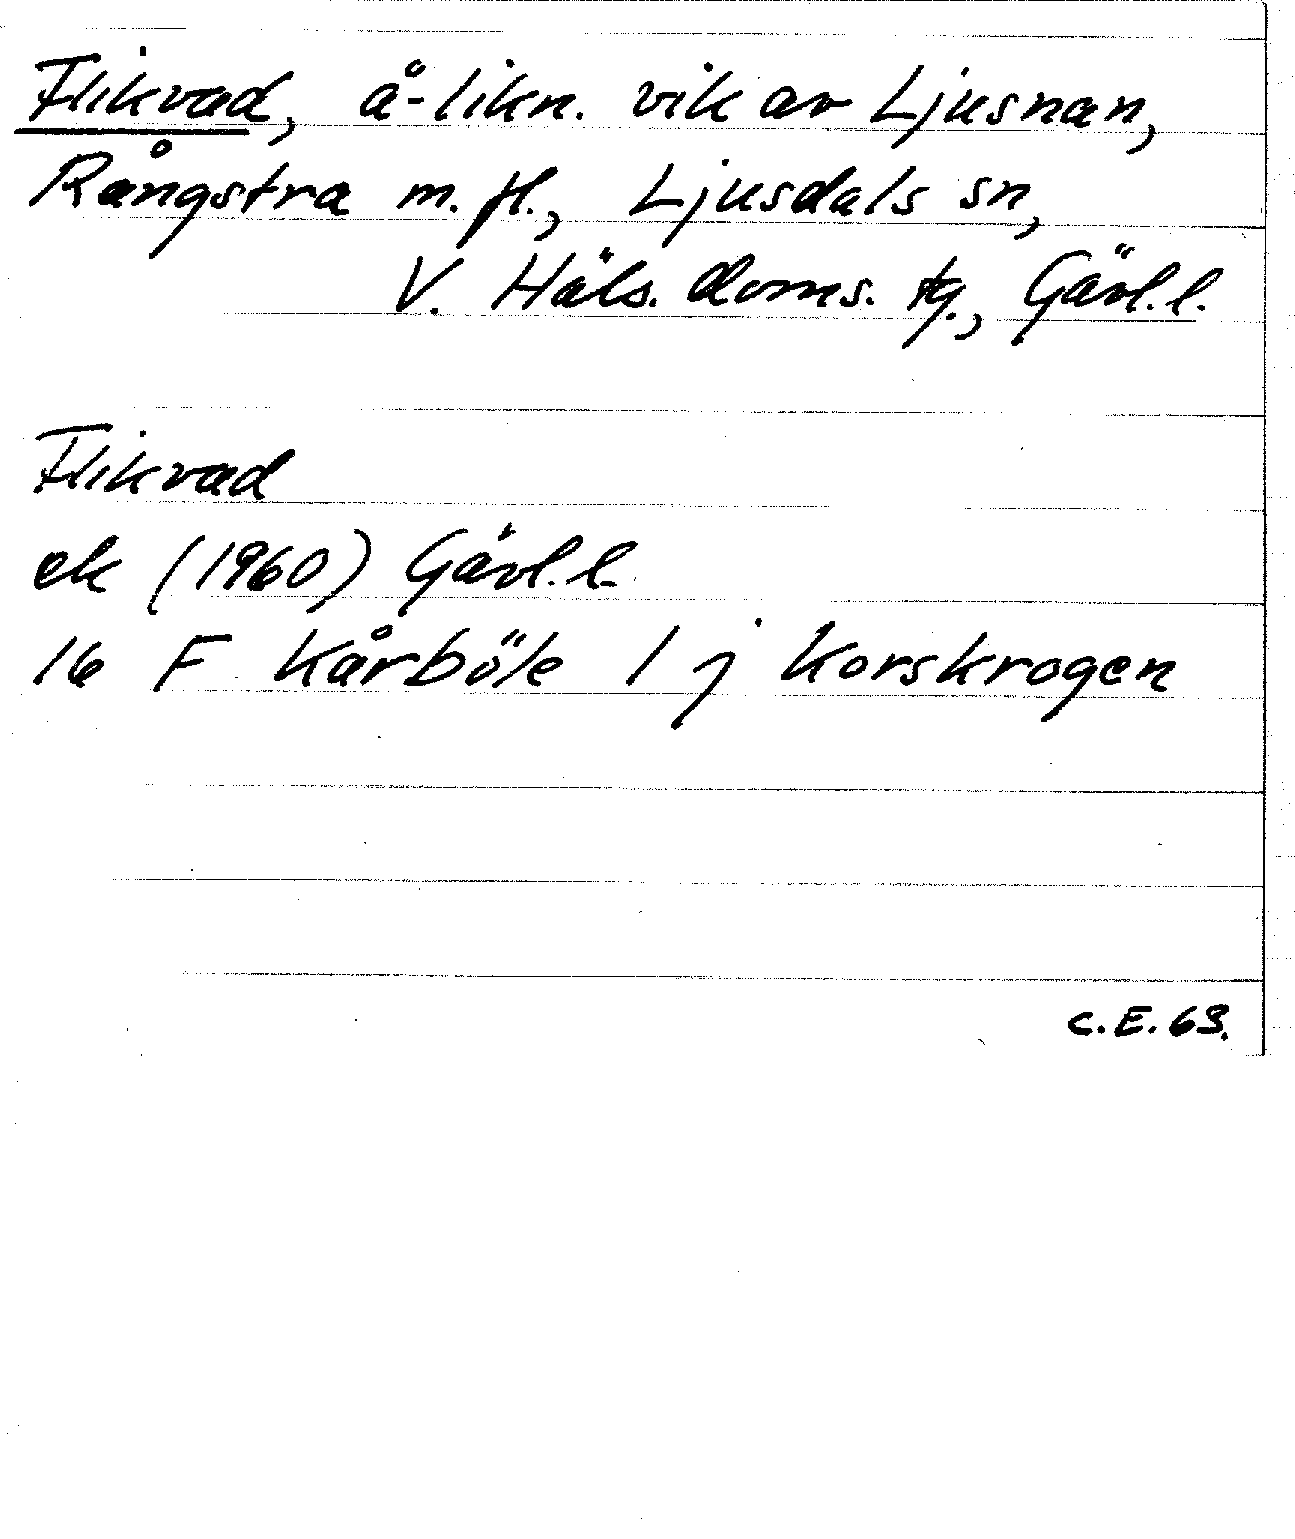 Flikvad, å-likn. vik av Ljusnan,
Rångstra m.fl., Ljusdals sn,
V. Häls. doms. tg., Gävl.l.
Flikvad
ek (1960) Gävl.l.
16 F Kårböle 1 j Korskrogen
C.E. 63.